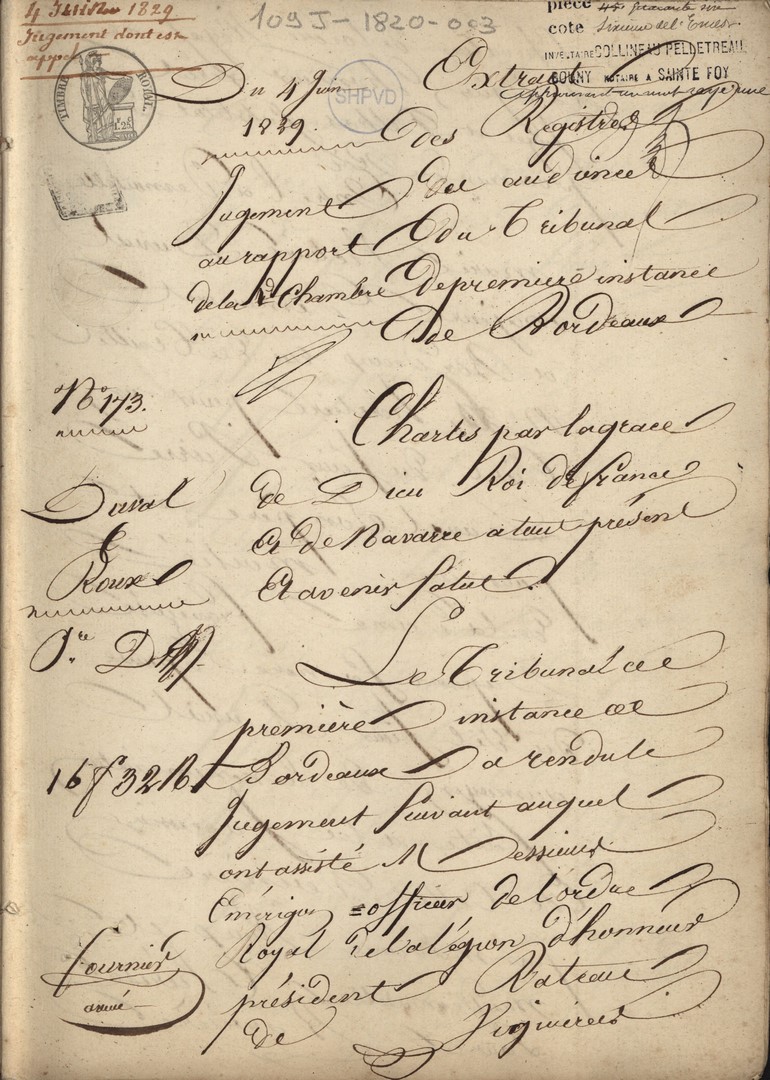 4 Juin 1829
Jugement dont est
appel
109 J - 1820 - 003
pièce 45e quarante six
cote Sixième del' Inven
INVENTAIRE COLLINEAU PELLETREAU
GOUNY NOTAIRE A SAINTE FOY
TIMBRE ROYAL
1.25
SHPVD
Du 4 Juin
1829.
Jugement
au rapport
de la 2e Chambre
Extrait
Des Registres
des audiences
du Tribunal
de première instance
de Bordeaux
No 173.
Duval
C
Roux
16 f 32 R.
Fournier
avoué
Charles par la grace
de Dieu Roi de france
et de Navarre a tous présent
et avenir Salut.
Le Tribunal de
première instance de
Bordeaux a rendu le
Jugement Suivant auquel
ont assisté Messieurs
Emérigon officier de l'ordre
Royal de la légion d'honneur
président Rateau
de Pignières